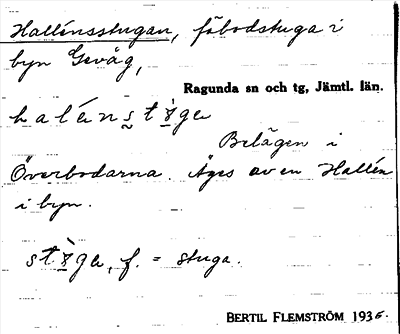 Hallénsstugan, fäbodstuga i
byn Gevåg,
Ragunda sn och tg, Jämtl. län.
halénstạ̀ga
Belägen i
Överbodarna. Äges av en Hallén
i byn.
f. = stuga.
BERTIL FLEMSTRÖM 1936.